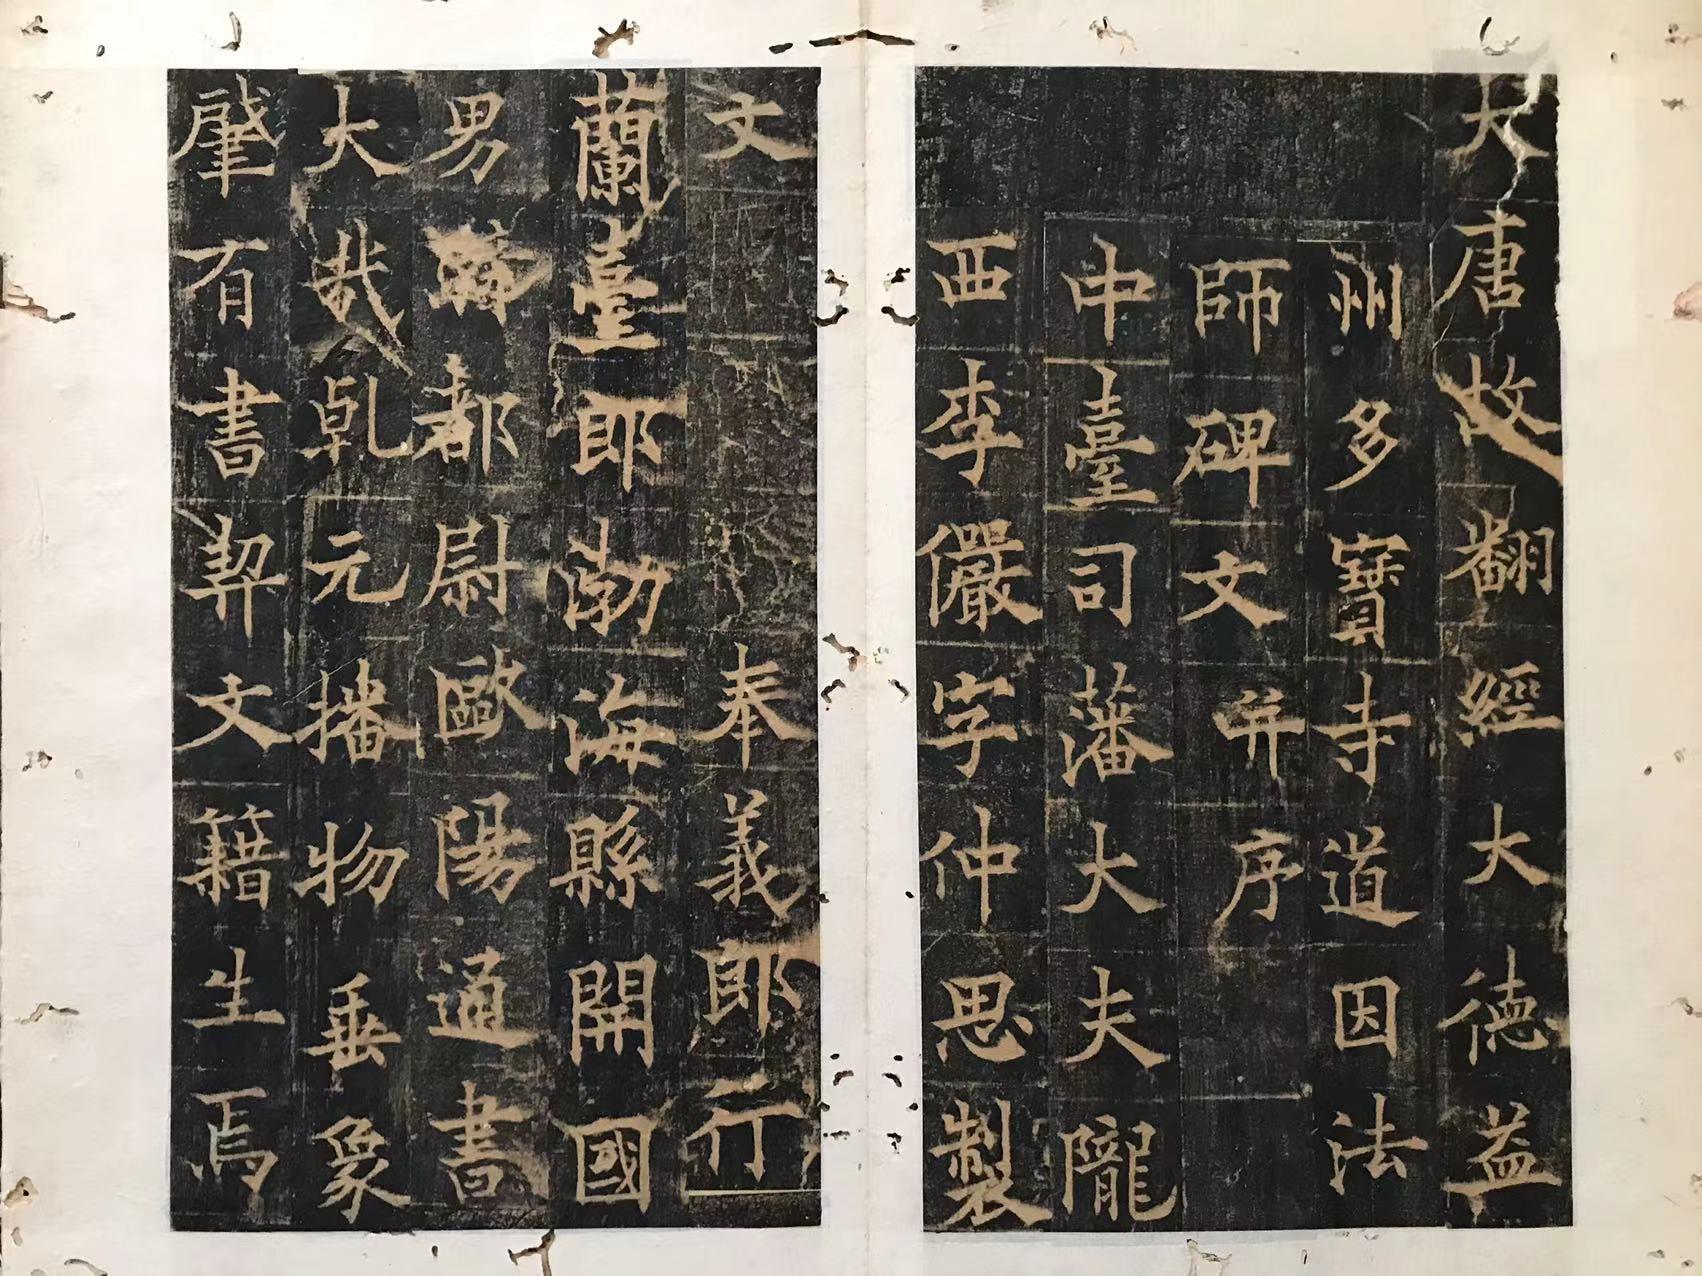 大唐故翻經大德益
州多寶寺道因法
師碑文并序
中臺司藩大夫隴
西李儼字仲思製
文　奉義郎行
蘭臺郎渤海縣開國
男騎都尉歐陽通書
大哉乹元播物垂象
肇有書契文籍生焉